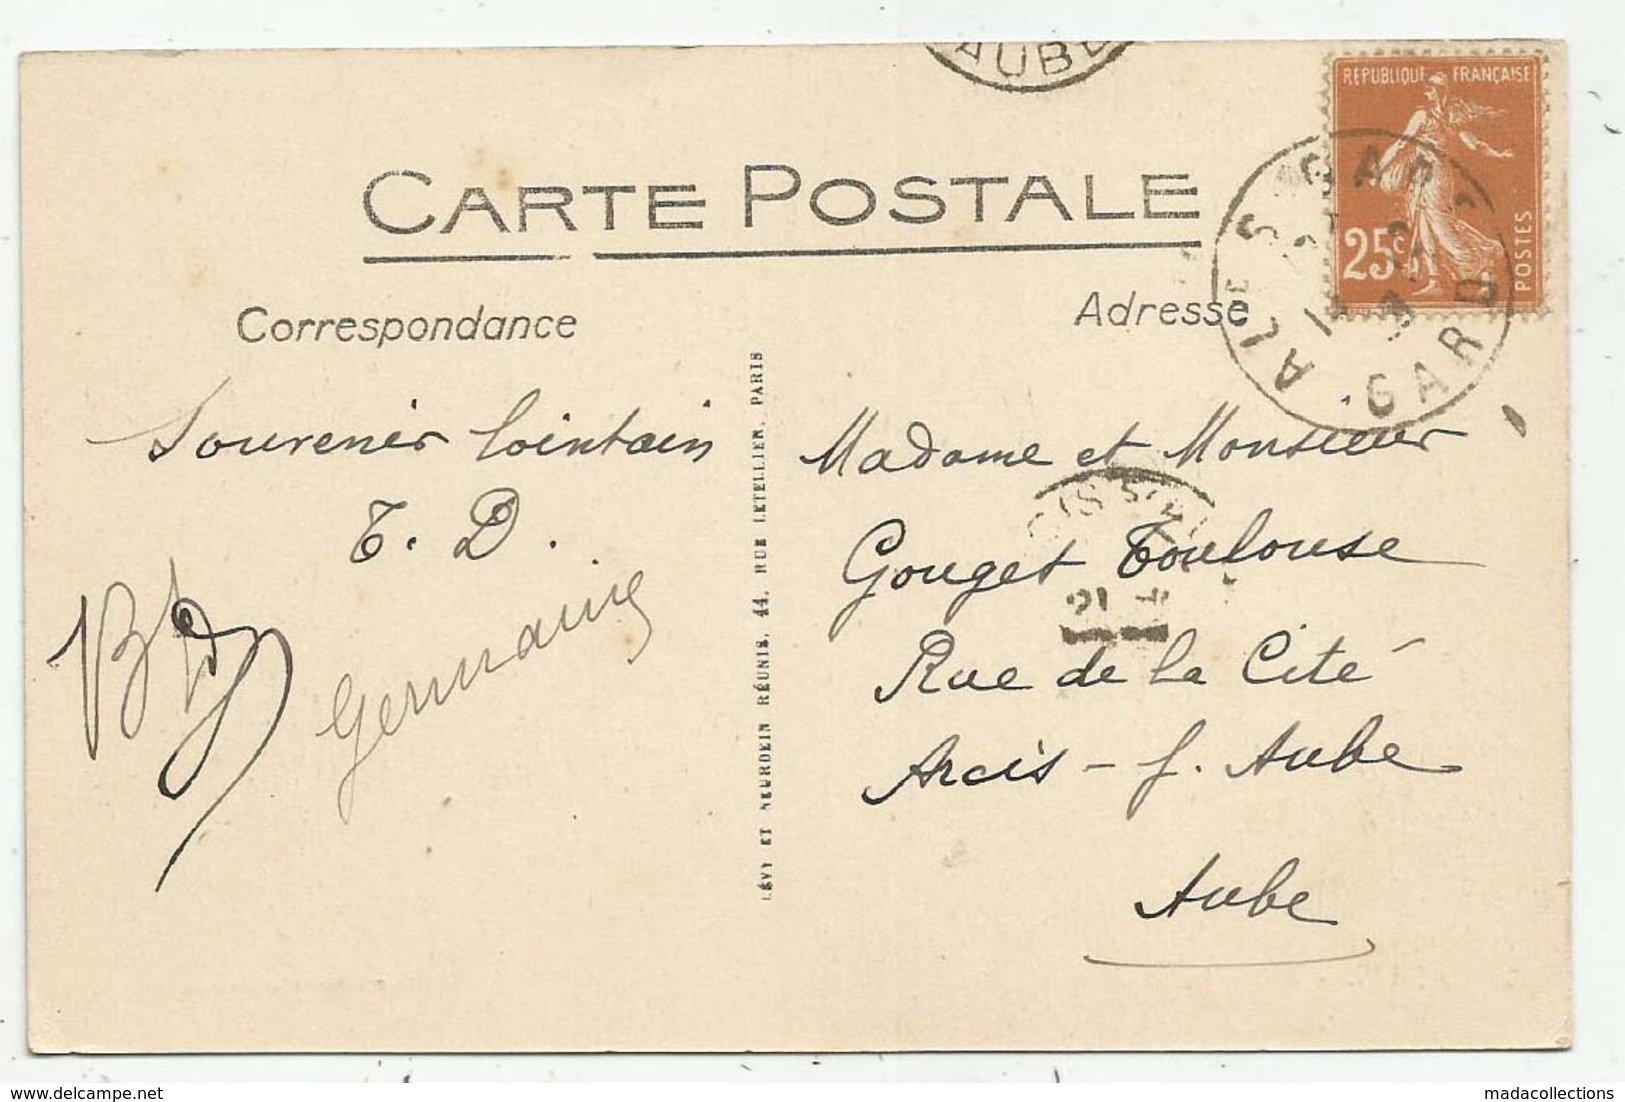 AUBE
RÉPUBLIQUE FRANÇAISE
25c
POSTES
GARD
CARTE POSTALE
Correspondance
Adresse
Souvenir lointain
T. D.
Germaine
LÉVY ET NEURDEIN RÉUNIS, 44, RUE LETELLIER, PARIS
Madame et Monsieur
Gouget Toulouse
Rue de la Cité
Arcis - s. Aube
Aube
madacollections